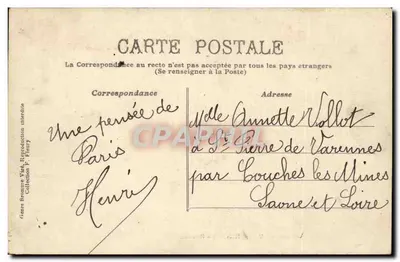 CARTE POSTALE
La Correspondance au recto n'est pas acceptée par tous les pays étrangers
(Se renseigner à la Poste)
Correspondance
Adresse
Une pensée de
Paris
Henri
Mlle Annette Vollot
à St Pierre de Varennes
par Couches les Mines
Saone et Loire
CPARAMA
Collection P. Fleury